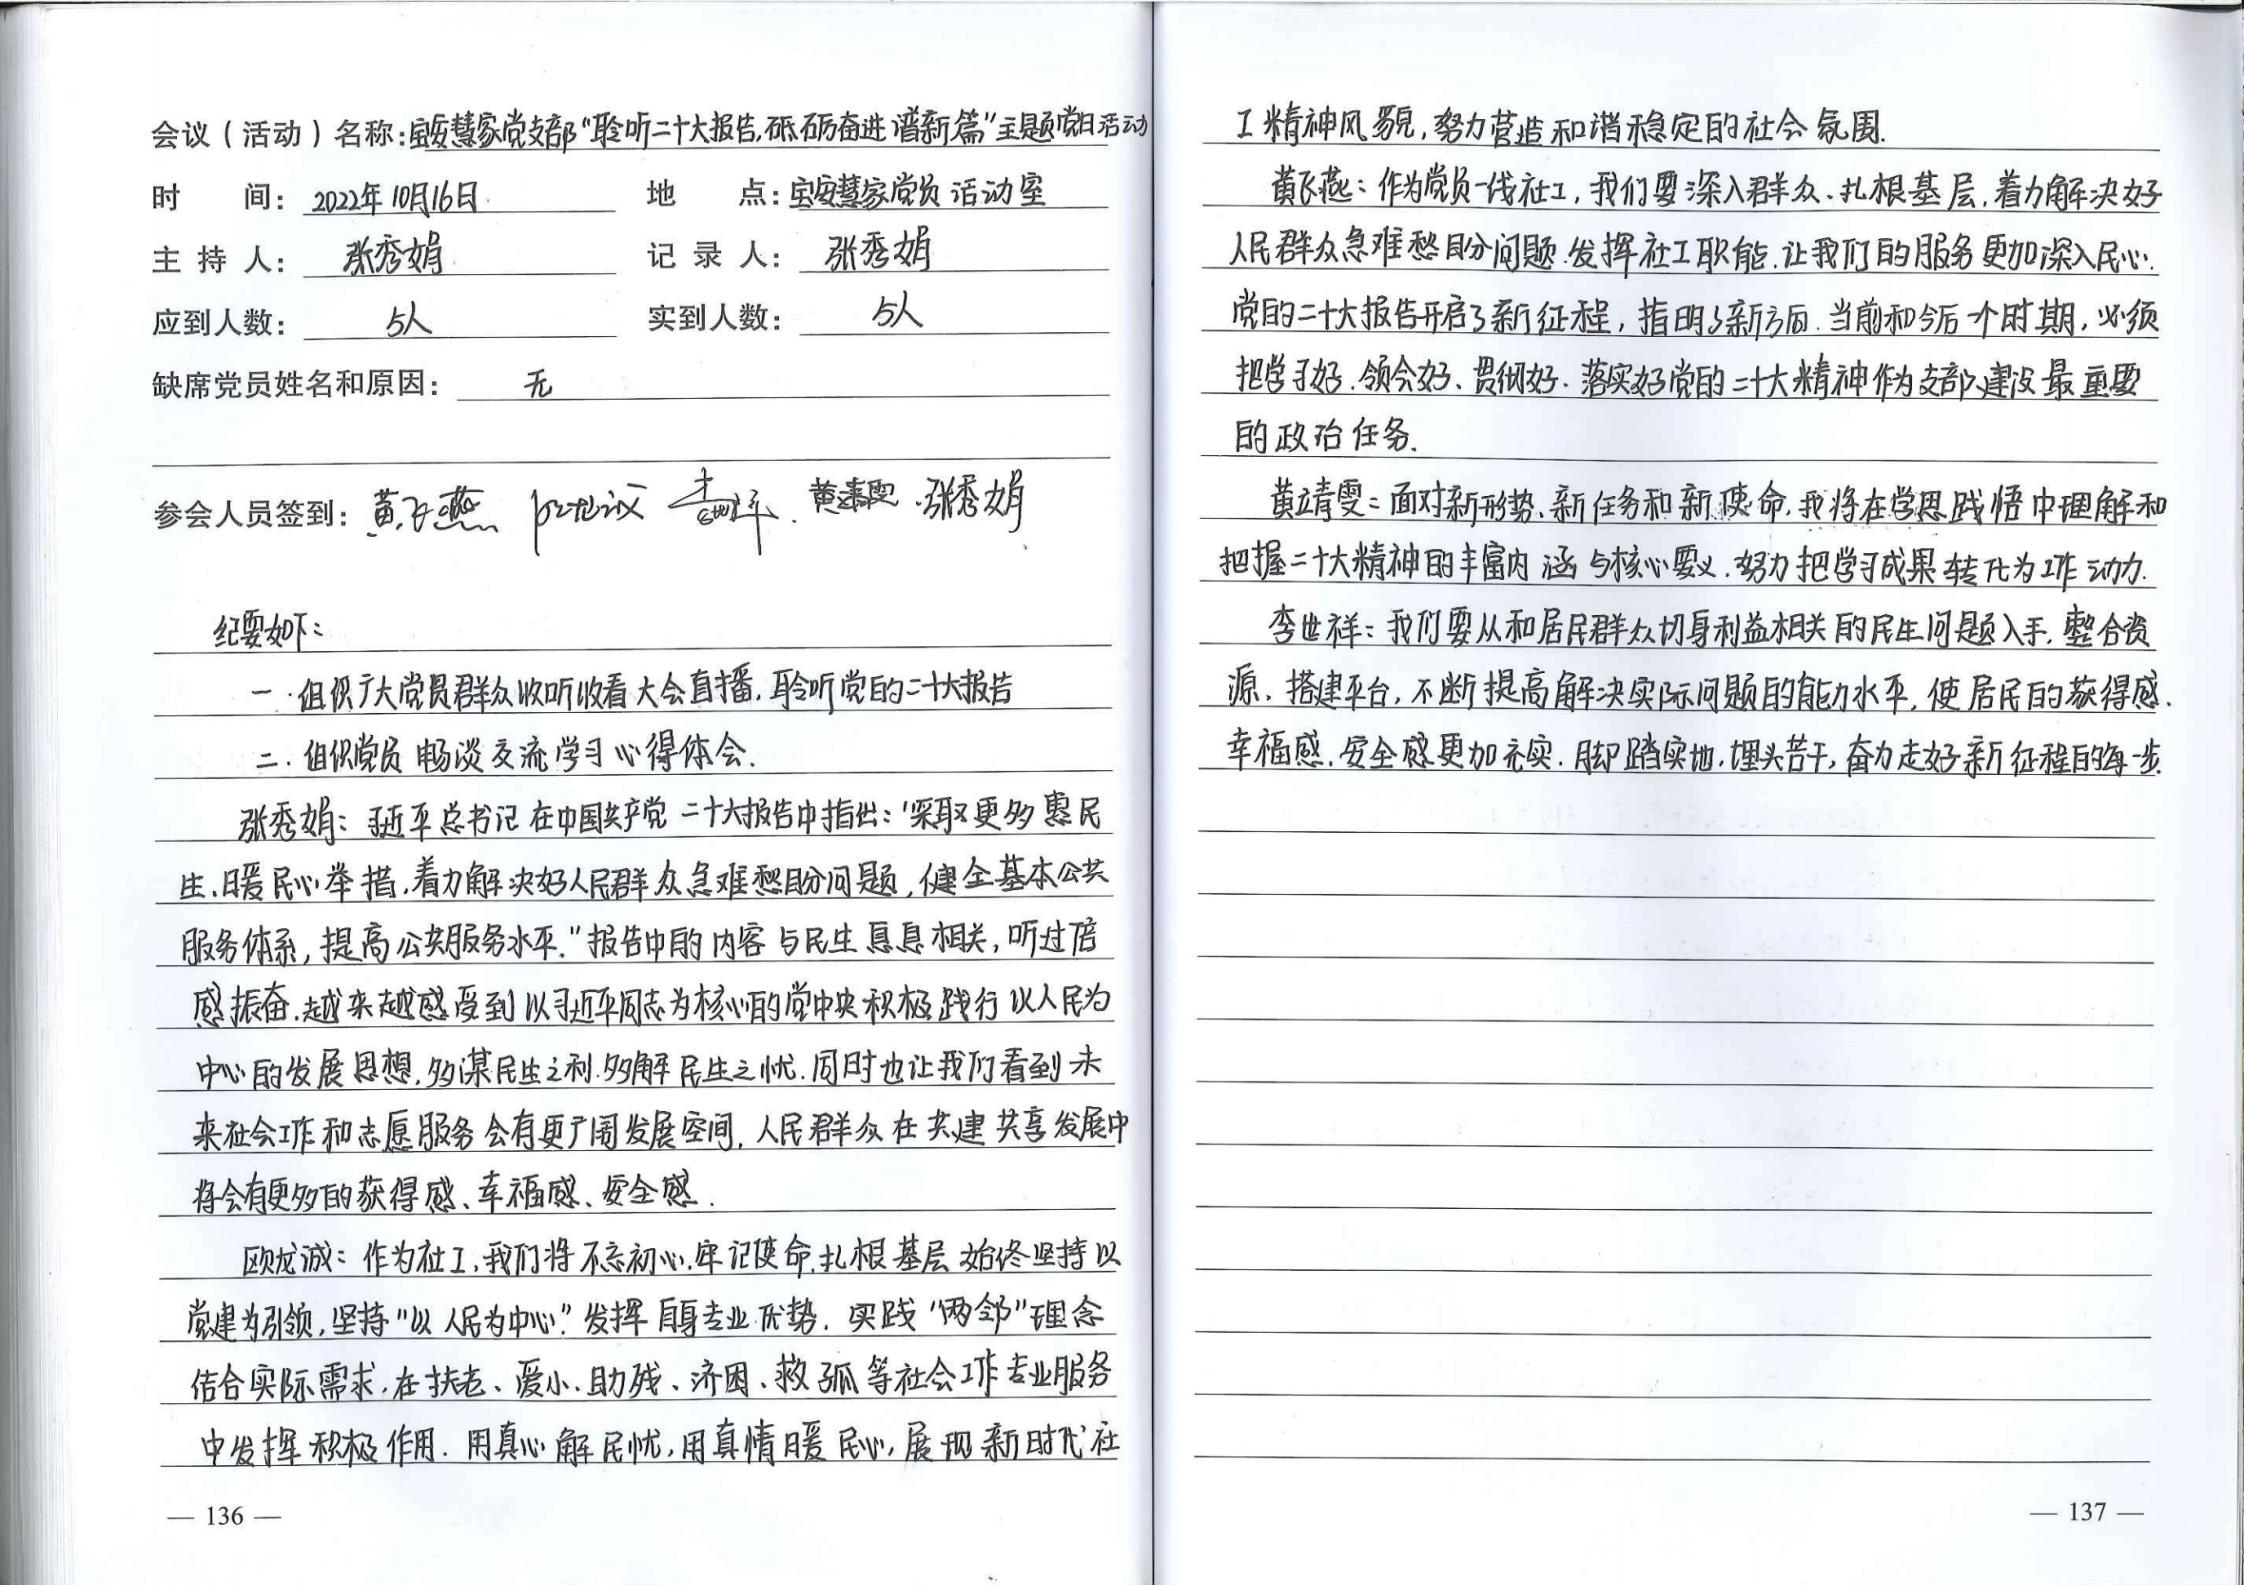 会议（活动）名称：宝安慧家党支部“聆听二十大报告，砥砺奋进谱新篇”主题党日活动
时 间：2022年10月16日 地 点：宝安慧家党员活动室
主持人：张秀娟 记录人：张秀娟
应到人数：5人 实到人数：5人
缺席党员姓名和原因：无
参会人员签到：黄飞燕 欧龙诚 李世祥 黄靖雯 张秀娟
纪要如下：
一．组织广大党员群众收听收看大会直播，聆听党的二十大报告
二．组织党员畅谈交流学习心得体会．
张秀娟：习近平总书记在中国共产党二十大报告中指出：“采取更多惠民
生、暖民心举措，着力解决好人民群众急难愁盼问题，健全基本公共
服务体系，提高公共服务水平．”报告中的内容与民生息息相关，听过倍
感振奋．越来越感受到以习近平同志为核心的党中央积极践行以人民为
中心的发展思想，多谋民生之利．多解民生之忧．同时也让我们看到未
来社会工作和志愿服务会有更广阔发展空间，人民群众在共建共享发展中
将会有更多的获得感、幸福感、安全感．
欧龙诚：作为社工，我们将不忘初心．牢记使命．扎根基层 始终坚持以
党建为引领，坚持“以人民为中心．”发挥自身专业优势．实践“两邻”理念
结合实际需求，在扶老、爱小、助残、济困、救孤等社会工作专业服务
中发挥积极作用．用真心解民忧，用真情暖民心，展现新时代社
— 136 —
工精神风貌，努力营造和谐稳定的社会氛围．
黄飞燕：作为党员一线社工，我们要深入群众、扎根基层，着力解决好
人民群众急难愁盼问题．发挥社工职能．让我们的服务更加深入民心．
党的二十大报告开启了新征程，指明了新方向．当前和今后一个时期，必须
把学习好．领会好、贯彻好．落实好党的二十大精神作为支部建设最重要
的政治任务．
黄靖雯：面对新形势、新任务和新使命，我将在学思践悟中理解和
把握二十大精神的丰富内涵与核心要义．努力把学习成果转化为工作动力．
李世祥：我们要从和居民群众切身利益相关的民生问题入手，整合资
源、搭建平台，不断提高解决实际问题的能力水平，使居民的获得感、
幸福感、安全感更加充实．脚踏实地，埋头苦干，奋力走好新征程的每一步．
— 137 —